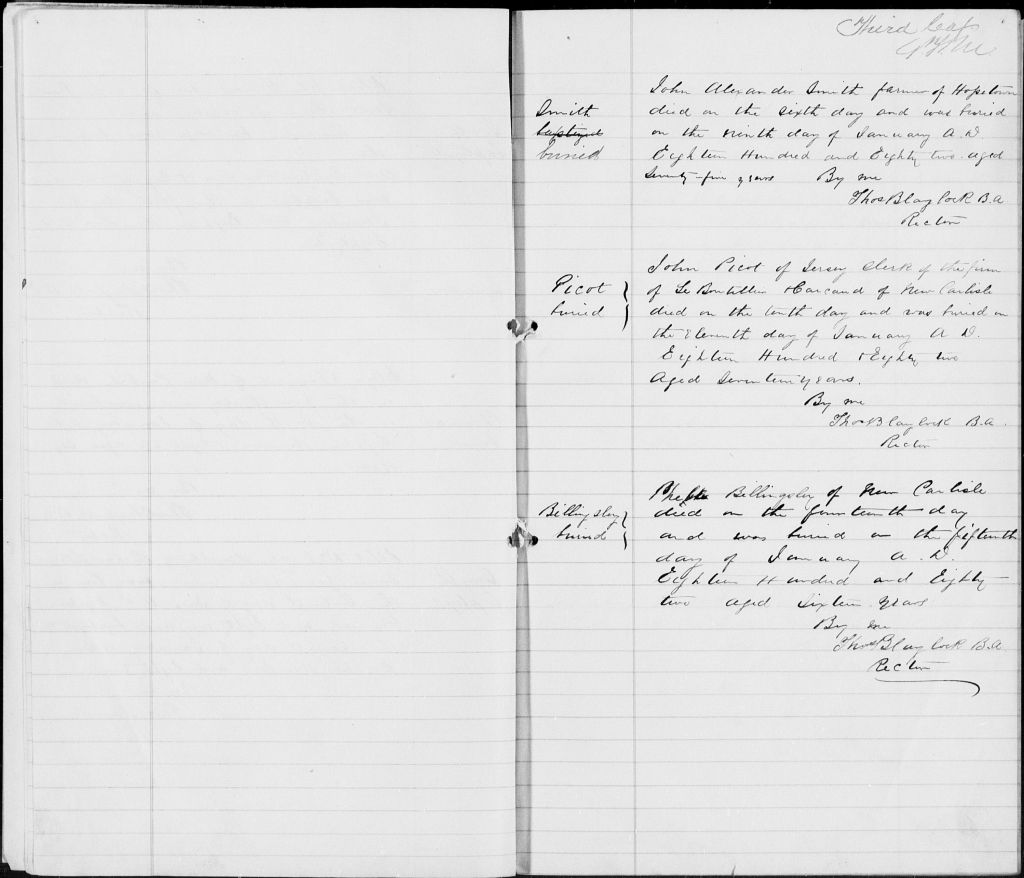 Third leaf
Smith
baptized
buried
John Alexander Smith farmer of Hopetown
died on the sixth day and was buried
on the ninth day of January A.D.
Eighteen Hundred and Eighty two aged
Seventy-five years By me
Thos Blaylock B.A
Rector
Picot
buried
John Picot of Jersey Clerk of the firm
of Le Boutillier of New Carlisle
died on the tenth day and was buried on
the Eleventh day of January A D.
Eighteen Hundred & Eighty two
Aged Seventeen years.
By me
Thos Blaylock B.A.
Rector
Billingsley
buried
Billingsley of New Carlisle
died on the fourteenth day
and was buried on the fifteenth
day of January A.D.
Eighteen Hundred and Eighty
two aged sixteen years
By me
Thos Blaylock B.A
Rector